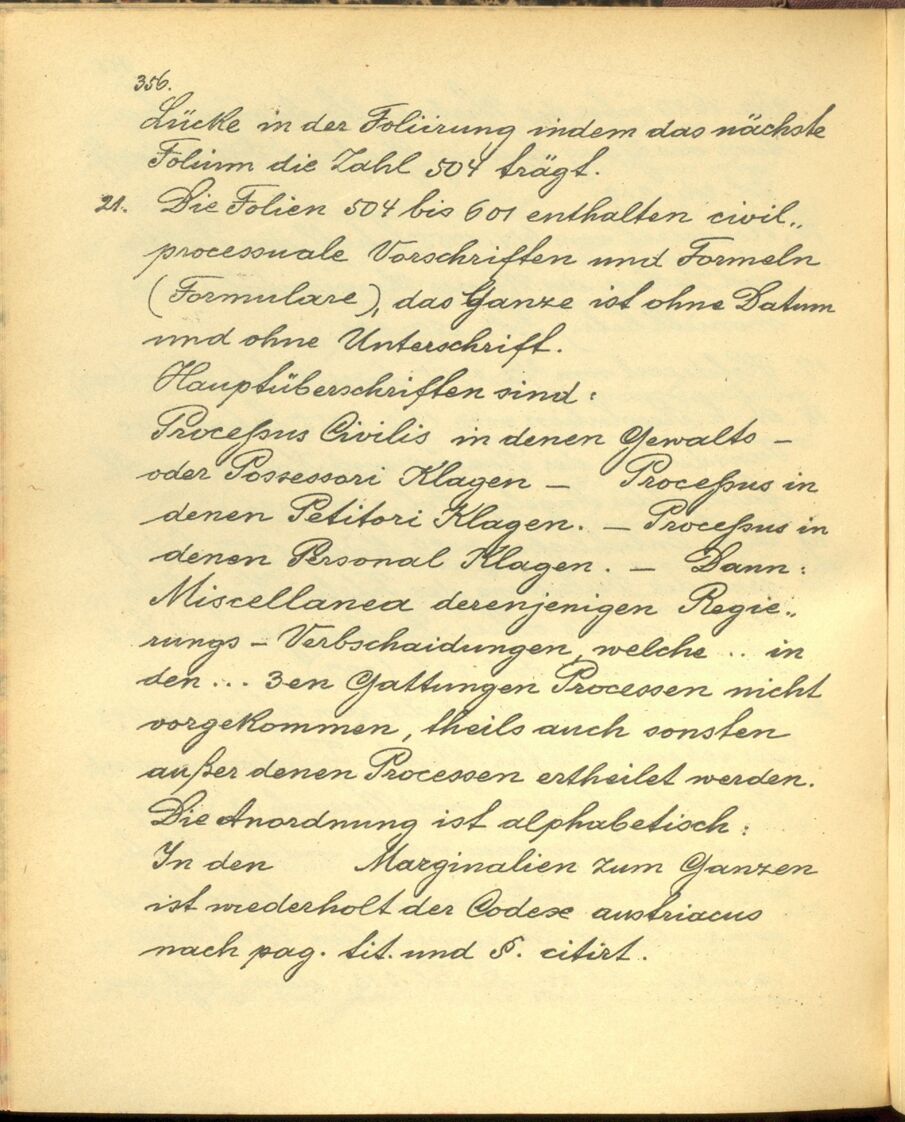 356.
Lücke in der Foliirung indem das nächste
Folium die Zahl 504 trägt.
21. Die Folien 504 bis 601 enthalten civil„
processuale Vorschriften und Formeln
(Formulare), das Ganze ist ohne Datum
und ohne Unterschrift.
Hauptüberschriften sind:
Proceſsus Civilis in denen Gewalts –
oder Possessori Klagen – Proceſsus in
denen Petitori Klagen. – Proceſsus in
denen Personal Klagen. – Dann:
Miscellanea derenjenigen Regie„
rungs – Verbschaidungen, welche .. in
den ... 3en Gattungen Processen nicht
vorgekommen, theils auch sonsten
außer denen Processen ertheilet werden.
Die Anordnung ist alphabetisch:
In den Marginalien zum Ganzen
ist wiederholt der Codex austriacus
nach pag. tit. und §. citirt.